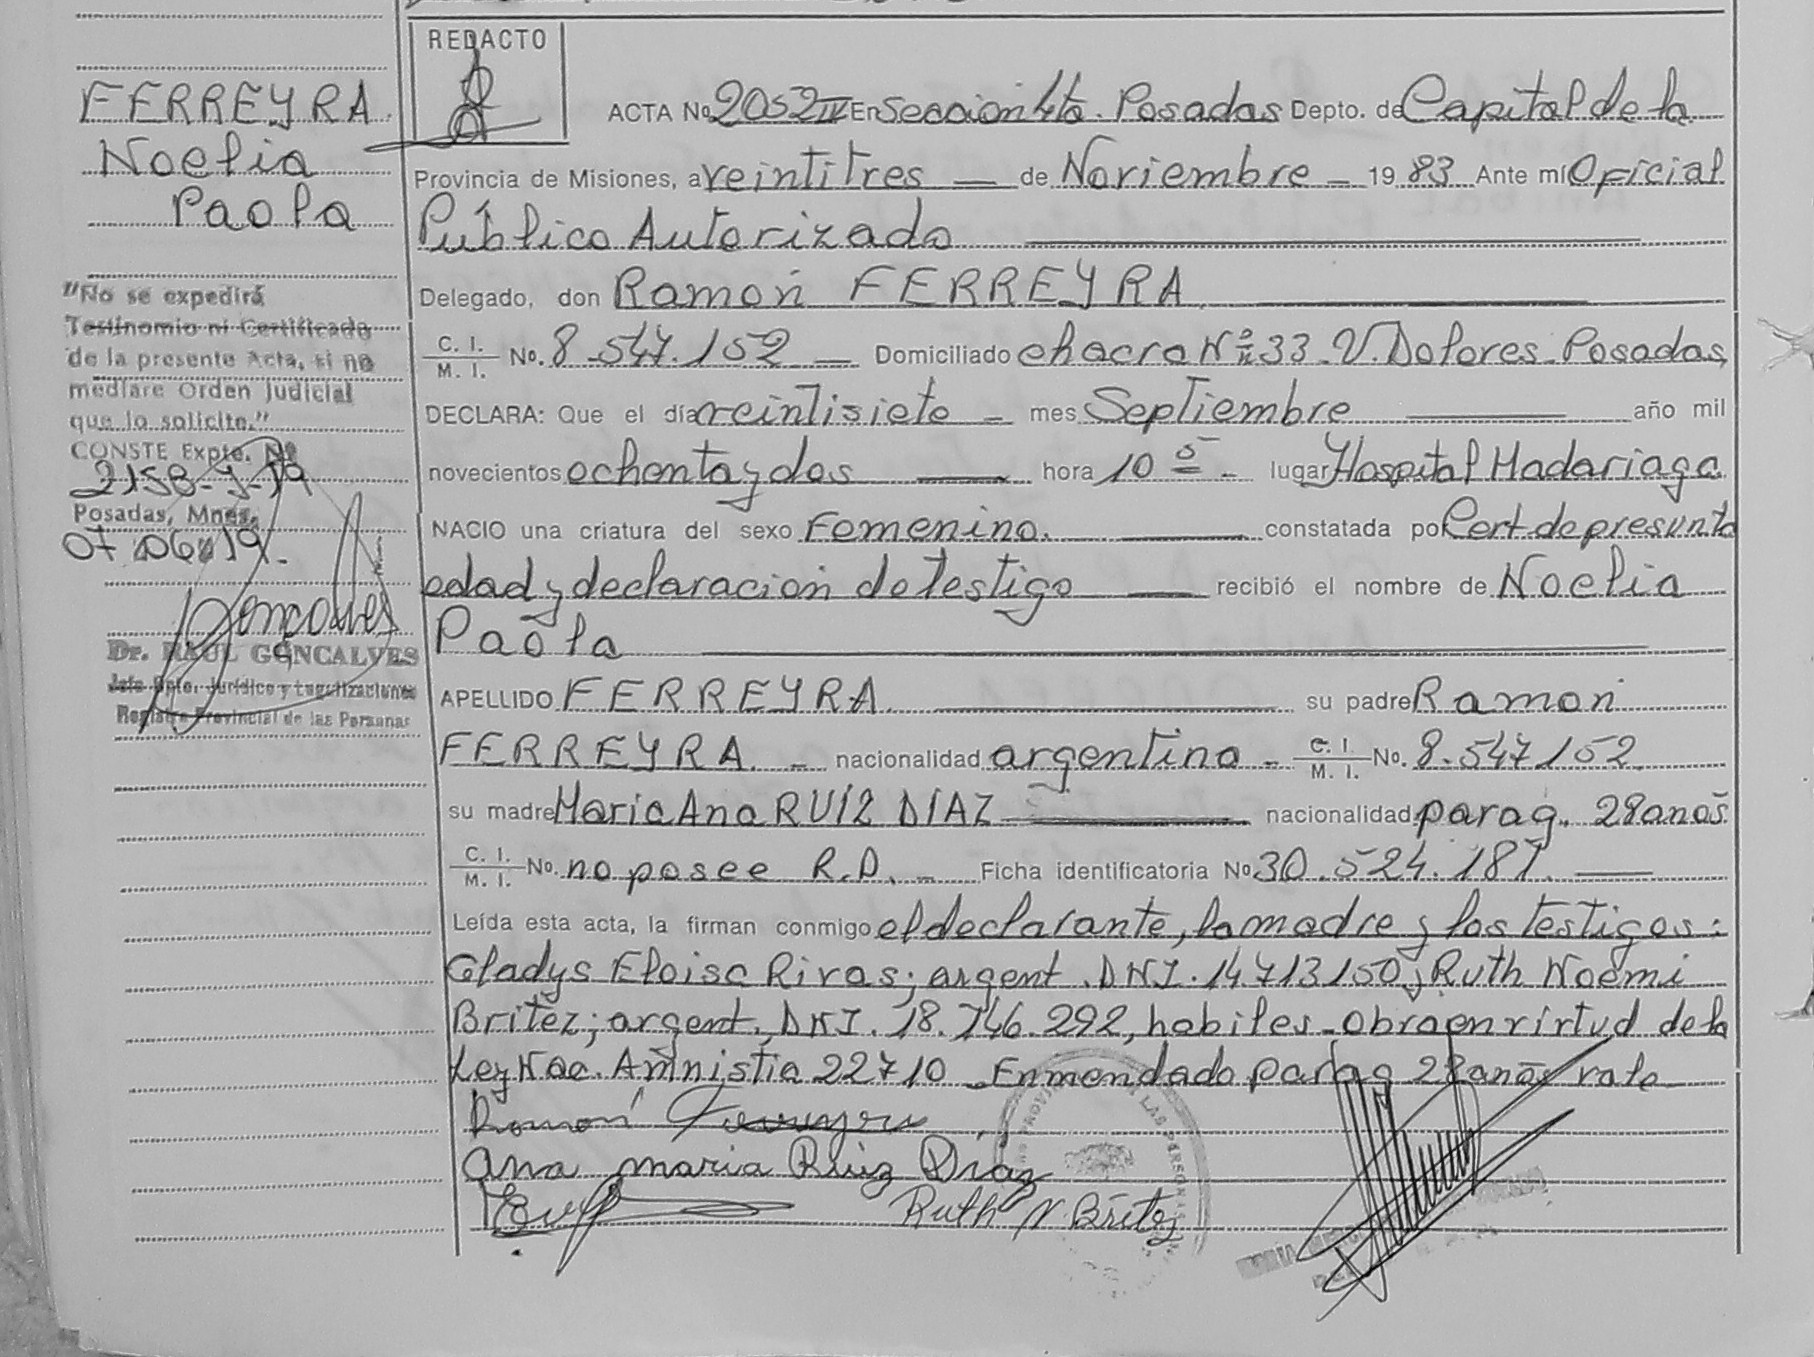 REDACTO
FERREYRA
Noelia
Paola
"No se expedirá
Testimonio ni Certificado
de la presente Acta, si no
mediare Orden Judicial
que lo solicite."
CONSTE Expte. Nº
2158-J-19
Posadas, Mnes,
07 06 19.
Goncalves
Dr. RAUL GONCALVES
Jefe Dpto. Jurídico y Legalizaciones
Registro Provincial de las Personas
ACTA No 2052 IV En Seccion 4ta. Posadas Depto. de Capital de la
Provincia de Misiones, a veintitres — de Noviembre - 19 83 Ante mí Oficial
Público Autorizado
Delegado, don Ramón FERREYRA
C. I. / M. I. No. 8.547.152 — Domiciliado chacra Nº 33-V. Dolores-Posadas,
DECLARA: Que el día veintisiete - mes Septiembre año mil
novecientos ochenta y dos hora 10 5 - lugar Hospital Madariaga
NACIO una criatura del sexo Femenino. constatada po Cert de presunta
edad y declaracion de testigo recibió el nombre de Noelia
Paola
APELLIDO FERREYRA su padre Ramon
FERREYRA. - nacionalidad argentino - C. I. / M. I. No. 8.547152.
su madre Maria Ana RUIZ DIAZ nacionalidad parag. 28 años
C. I. / M. I. No. no posee R.D. - Ficha identificatoria No 30.524.187.
Leída esta acta, la firman conmigo el declarante, la madre y los testigos:
Gladys Eloisa Rivas; argent. DNI. 14713150 y Ruth Noemi
Britez; argent. DNI. 18.746.292, habiles-Obra en virtud de la
Ley Nac. Amnistia 22710 - Enmendado parag 28 años vale
Ramón Ferreyra
Ana maria Ruiz Díaz
Ruth N Britez